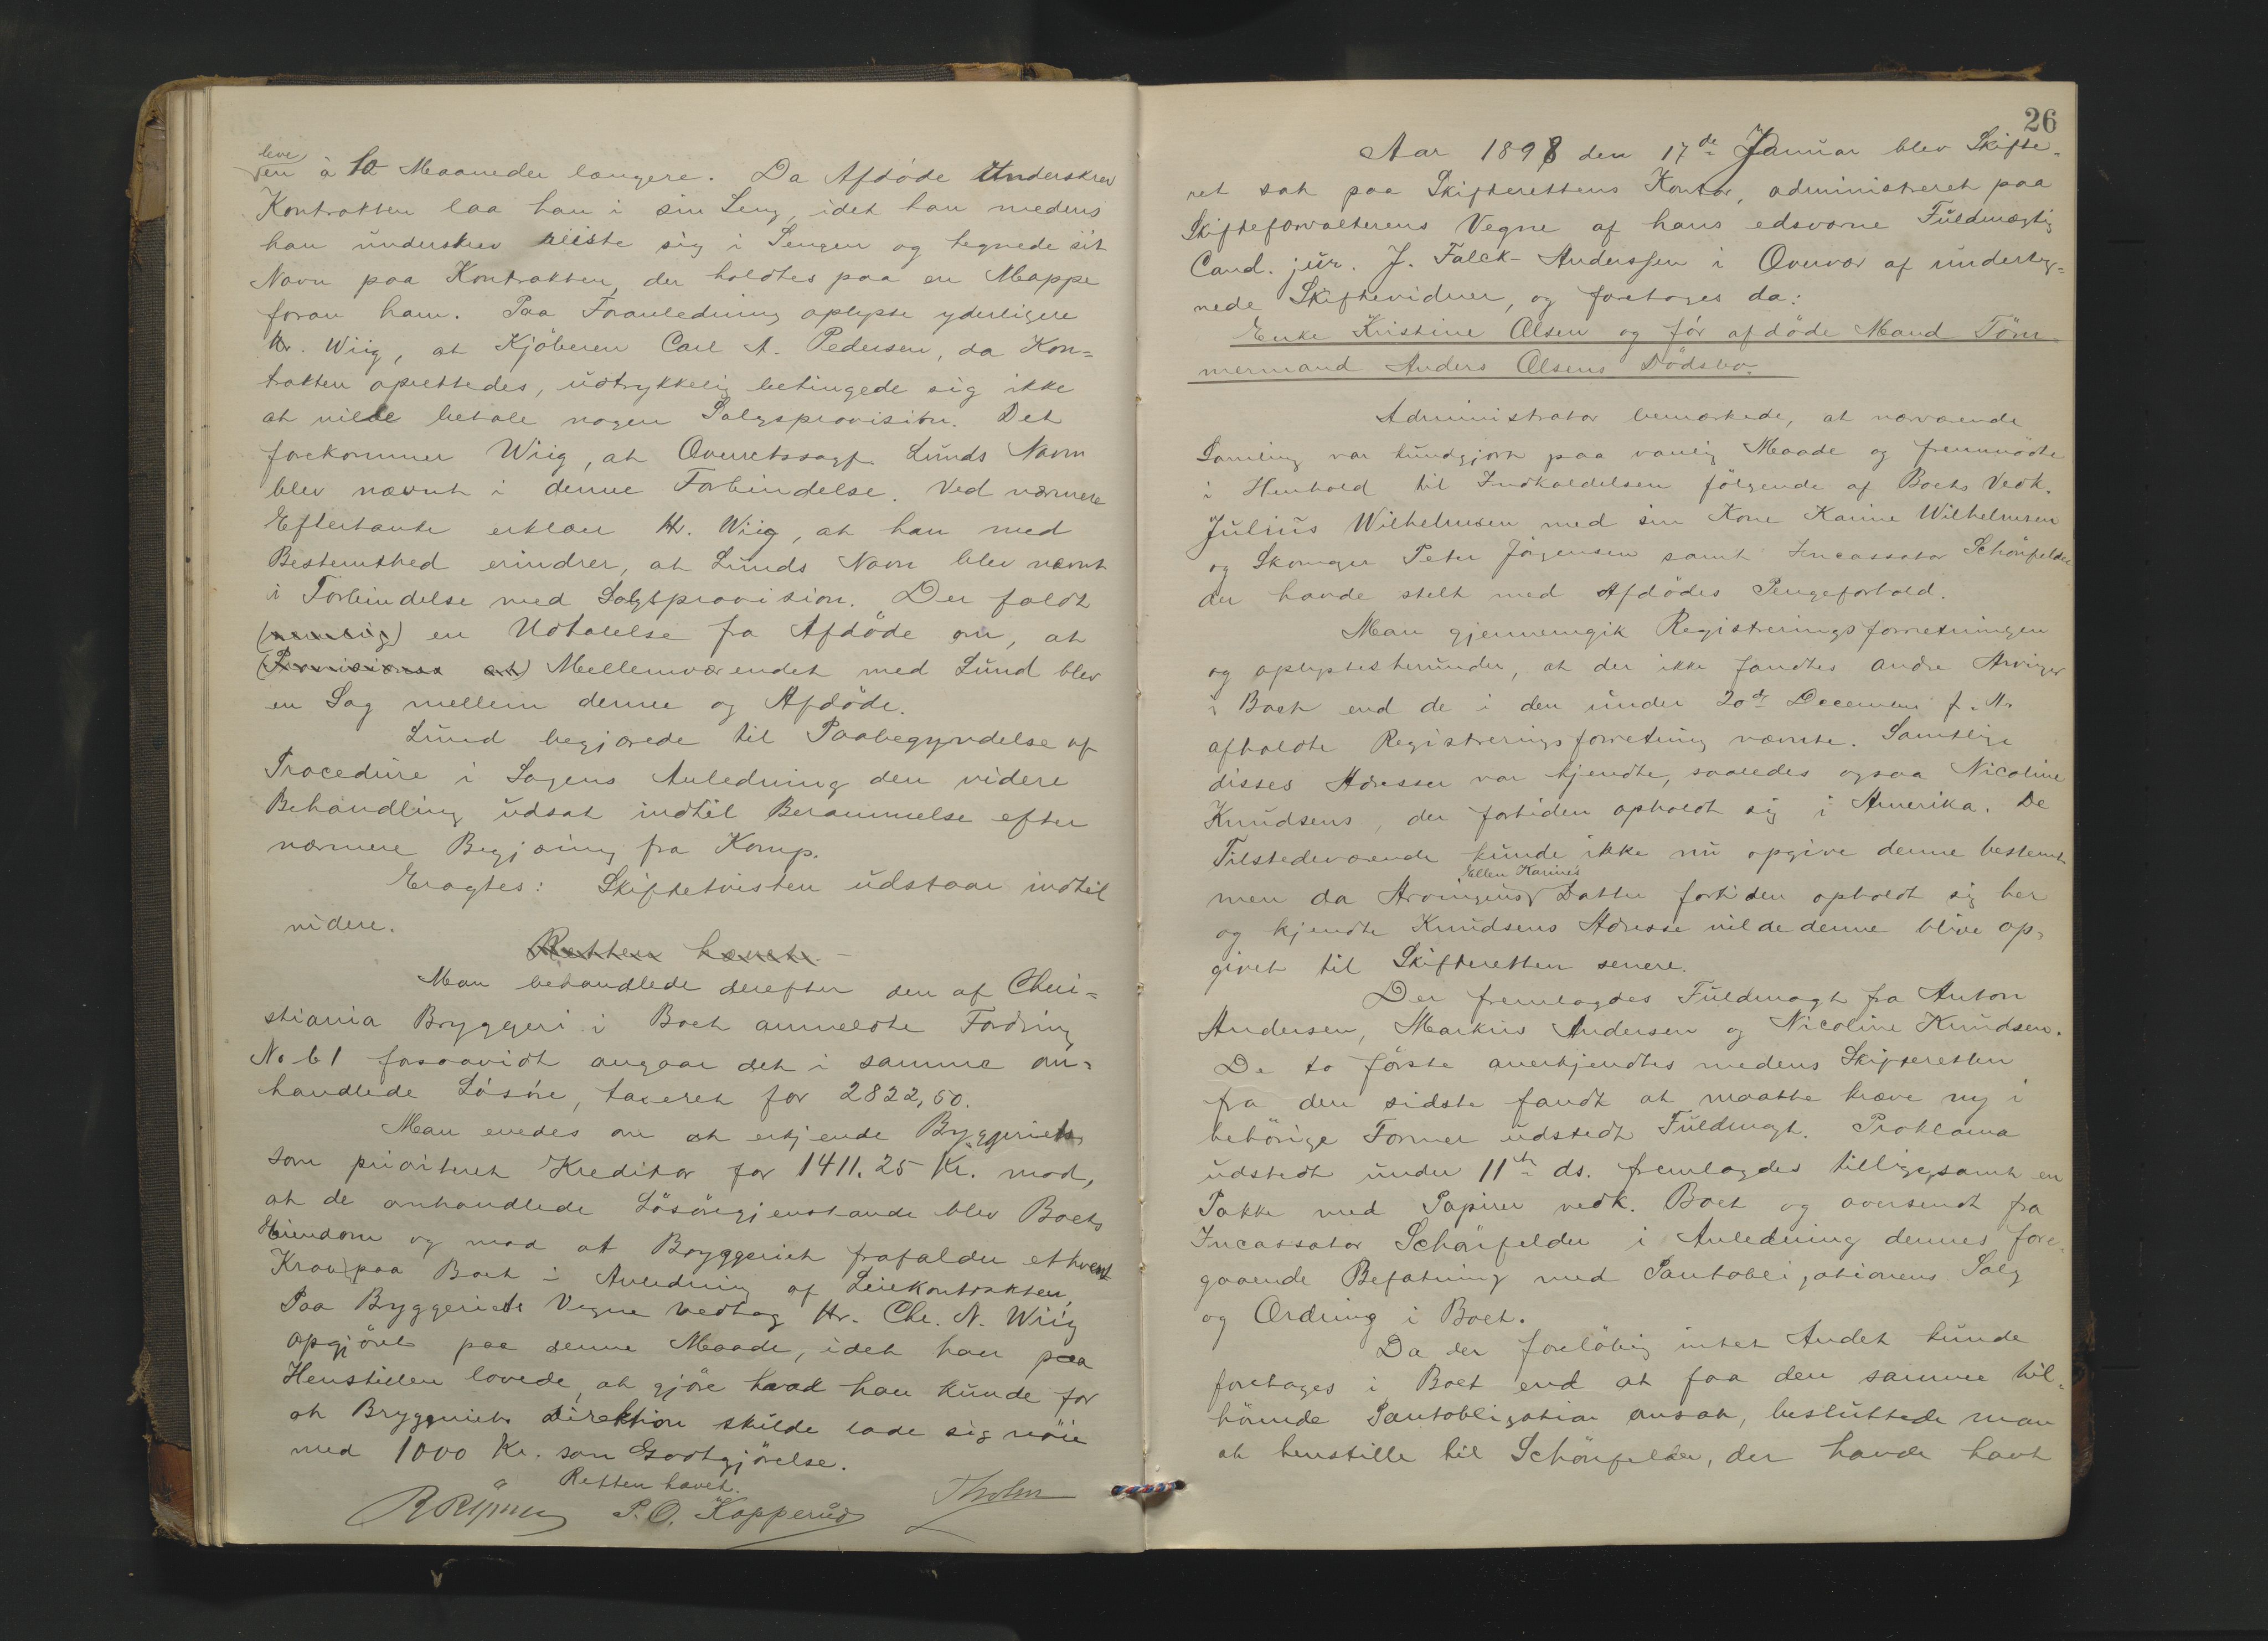 leve
en à to Maaneder længere. Da Afdöde underskrev
Kontrakten laa han i sin Seng, idet han medens
han underskrev reiste sig i Sengen og tegnede sit
Navn paa Kontrakten, der holdtes paa en Mappe
foran ham. Paa Foranledning oplyste yderligere
Hr. Wiig, at Kjöberen Carl A. Pedersen, da Kon=
trakten oprettedes, udtrykkelig betingede sig ikke
at ville betale nogen Salgsprovision. Det
forekommer Wiig, at Overretssagf. Lunds Navn
blev nævnt i denne Forbindelse. Ved nærmere
Eftertanke erklærer Hr. Wiig, at han med
Bestemthed erindrer, at Lunds Navn blev nævnt
i Forbindelse med Salgsprovision. Der faldt
(nemlig) en Udtalelse fra Afdöde om, at
(Provisionen at) Mellemværendet med Lund blev
en Sag mellem denne og Afdöde.
Lund begjærede til Paabegyndelse af
Procedure i Sagens Anledning den videre
Behandling udsat indtil Berammelse efter
nærmere Begjæring fra Komp.
Eragtes: Skiftetvisten udstaar indtil
videre.
Retten hævet.
Man behandlede derefter den af Chri=
stiania Bryggeri i Boet anmeldte Fordring
No 61 forsaavidt angaar det i samme om=
handlede Lösöre, taxeret for 2822,50.
Man enedes om at erkjende Bryggeriet
som prioriteret Kreditor for 1411.25 Kr. mod,
at de omhandlede Lösöregjenstande blev Boets
Eiendom og mod at Bryggeriet frafalder ethvert
Krav paa Boet i Anledning af Leiekontrakten,
Paa Bryggeriets Vegne vedtog Hr. Chr. N. Wiig
opgjöret paa denne Maade, idet han paa
Henstillen lovede, at gjöre hvad han kunde for
at Bryggeriets Direktion skulde lade sig nöie
med 1000 Kr. som Godtgjörelse.
Retten hævet.
P. O. Kopperud
26
Aar 1898 den 17de Januar blev Skifte=
ret sat paa Skifterettens Kontor, administreret paa
Skifteforvalterens Vegne af hans edsvorne Fuldmægtig
Cand. jur. J. Falck-Anderssen i Overvær af underteg=
nede Skiftevidner, og foretoges da:
Enke Kristine Olsen og för afdöde Mand Töm
mermand Anders Olsens Dödsbo.
Administrator bemærkede, at nærværende
Samling var kundgjort paa vanlig Maade og fremmödte
i Henhold til Indkaldelsen fölgende af Boets Vedk.
Julius Wilhelmsen med sin Kone Karine Wilhelmsen
og Skomager Peter Jörgensen samt Incassator Schönfelder
der havde stelt med Afdödes Pengeforhold.
Man gjennemgik Registreringsforretningen
og oplystes herunder, at der ikke fandtes andre Arvinger
i Boet end de i den under 20de December f. A.
afholdte Registreringsforretning nævnte. Samtlige
disses Adresser var kjendte, saaledes ogsaa Nicoline
Knudsens, der fortiden opholdt sig i Amerika. De
Tilstedeværende kunde ikke nu opgive denne bestemt
Ellen Karines
men da Arvingens Datter fortiden opholdt sig her
og kjendte Knudsens Adresse vilde denne blive op=
givet til Skifteretten senere.
Der fremlagdes Fuldmagt fra Anton
Andersen, Markus Andersen og Nicoline Knudsen.
De to förste anerkjendtes medens Skifteretten
fra den sidste fandt at maatte kræve ny i
behörige Former udstedt Fuldmagt. Proklama
udstedt under 11te ds. fremlagdes tilligesamt en
Pakke med Papirer vedk. Boet og oversendt fra
Incassator Schönfelder i Anledning dennes fore=
gaaende Befatning med Pantobligationens Salg
og Ordning i Boet.
Da der forelöbig intet Andet kunde
foretages i Boet end at faa den samme til=
hörende Pantobligation ansat, besluttede man
at henstille til Schönfelder, der havde havt